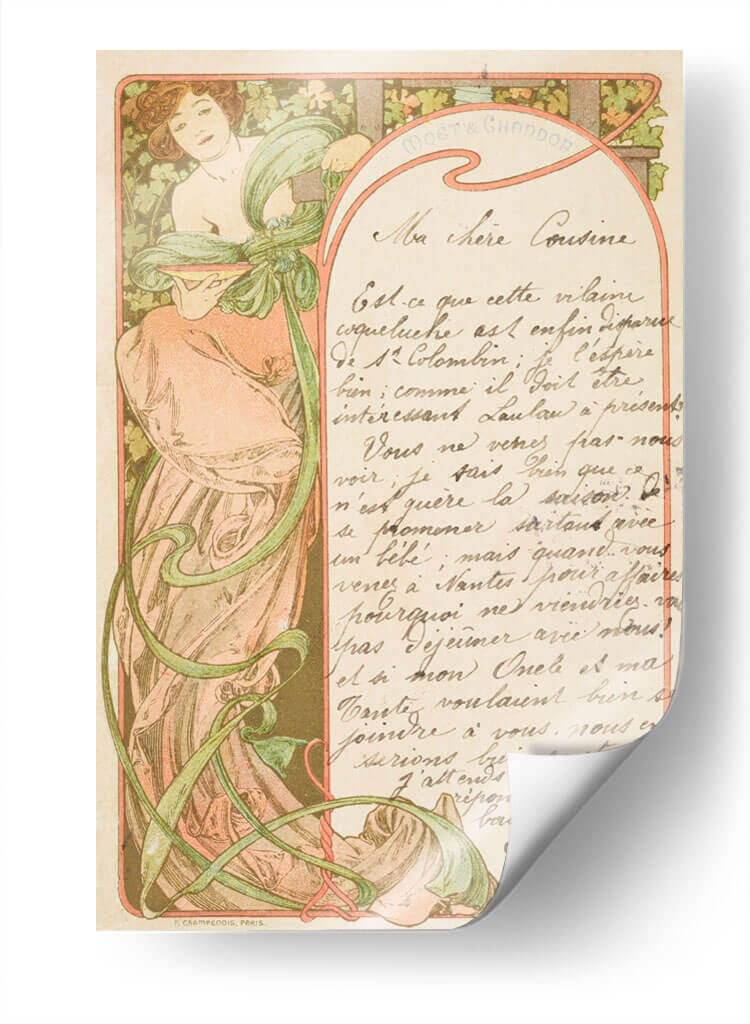 MOËT & CHANDON
Ma chère Cousine
Est-ce que cette vilaine
coqueluche est enfin disparue
de St Colombin; je l'espère
bien; comme il doit être
intéressant Laulau à présent!
Vous ne venez pas nous
voir; je sais bien que ce
n'est guère la saison de
se promener surtout avec
un bébé; mais quand vous
venez à Nantes pour affaires
pourquoi ne viendriez-vo
pas déjeûner avec nous!
et si mon Oncle et ma
Tante voulaient bien se
joindre à vous, nous en
serions
j'attends
répon
F. CHAMPENOIS, PARIS.